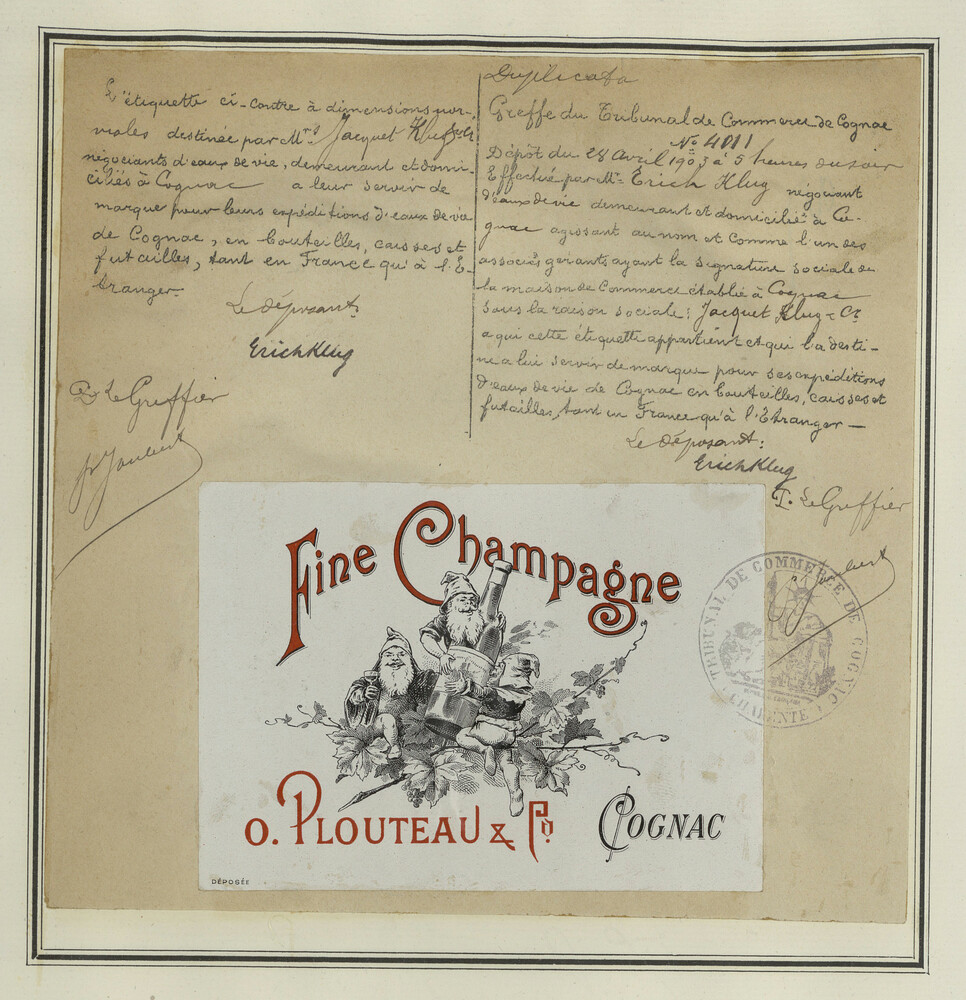 L'étiquette ci-contre à dimensions nor-
males destinée par Mrs Jacquet Klug & Cie
négociants d'eaux de vie, demeurant et domi-
ciliés à Cognac a leur servir de
marque pour leurs expéditions d'eaux de vie
de Cognac, en bouteilles, caisses et
futailles, tant en France qu'à l'E-
tranger
Le déposant
Erich Klug
Le Greffier
Joubert
Duplicata
Greffe du Tribunal de Commerce de Cognac
No 4011
Dépôt du 28 Avril 1903 à 5 heures du soir
Effectué par Mr Erich Klug négociant
d'eaux de vie demeurant et domicilié à Co-
gnac agissant au nom et comme l'un des
associés gérants ayant la signature sociale de
la maison de Commerce établie à Cognac
sous la raison sociale: Jacquet Klug & Cie
a qui cette étiquette appartient et qui la desti-
ne a lui servir de marque pour ses expéditions
d'eaux de vie de Cognac en bouteilles, caisses et
futailles, tant en France qu'à l'Etranger —
Le déposant:
Erich Klug
Le Greffier
Joubert
TRIBUNAL DE COMMERCE DE COGNAC
CHARENTE
Fine Champagne
O. PLOUTEAU & Co
COGNAC
DÉPOSÉE